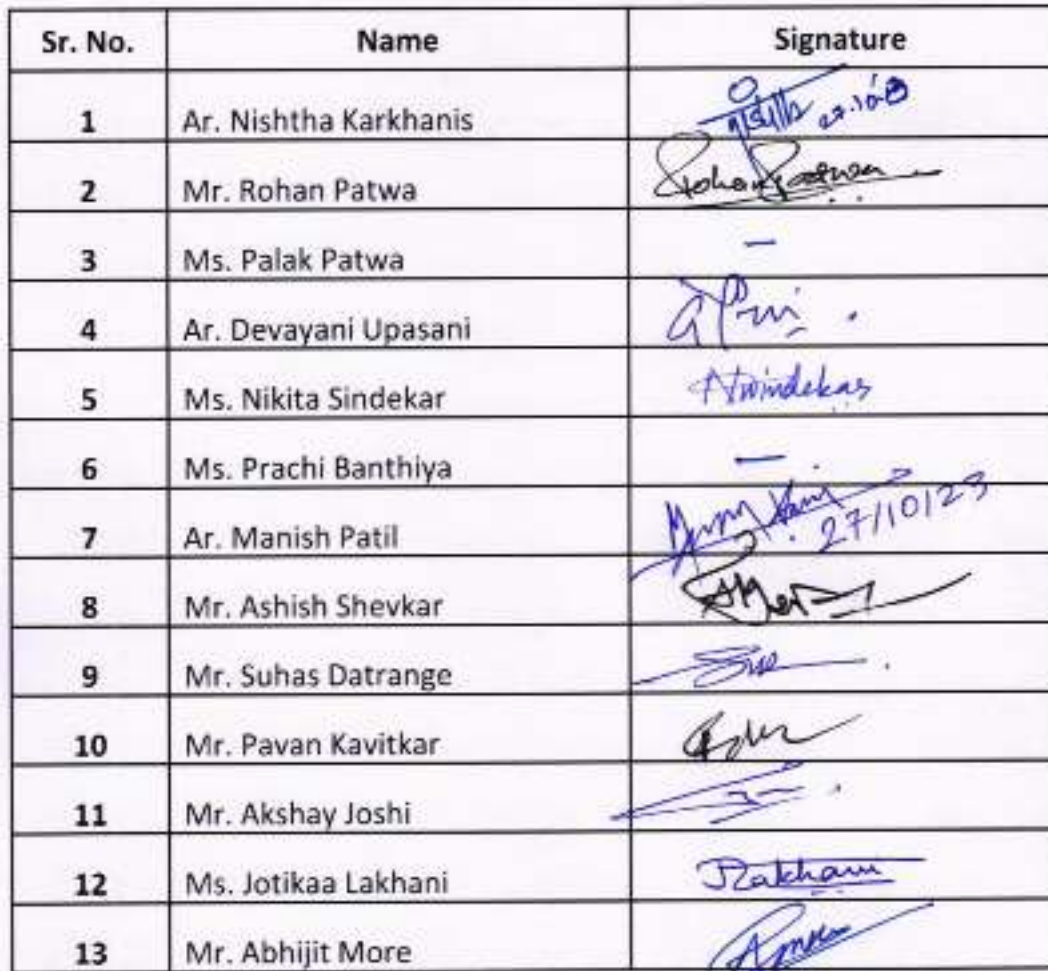 Sr. No. Name Signature
1 Ar. Nishtha Karkhanis
2 Mr. Rohan Patwa Rohan Patwa
3 Ms. Palak Patwa –
4 Ar. Devayani Upasani
5 Ms. Nikita Sindekar NSindekar
6 Ms. Prachi Banthiya –
7 Ar. Manish Patil 27/10/23
8 Mr. Ashish Shevkar
9 Mr. Suhas Datrange
10 Mr. Pavan Kavitkar
11 Mr. Akshay Joshi
12 Ms. Jotikaa Lakhani
13 Mr. Abhijit More